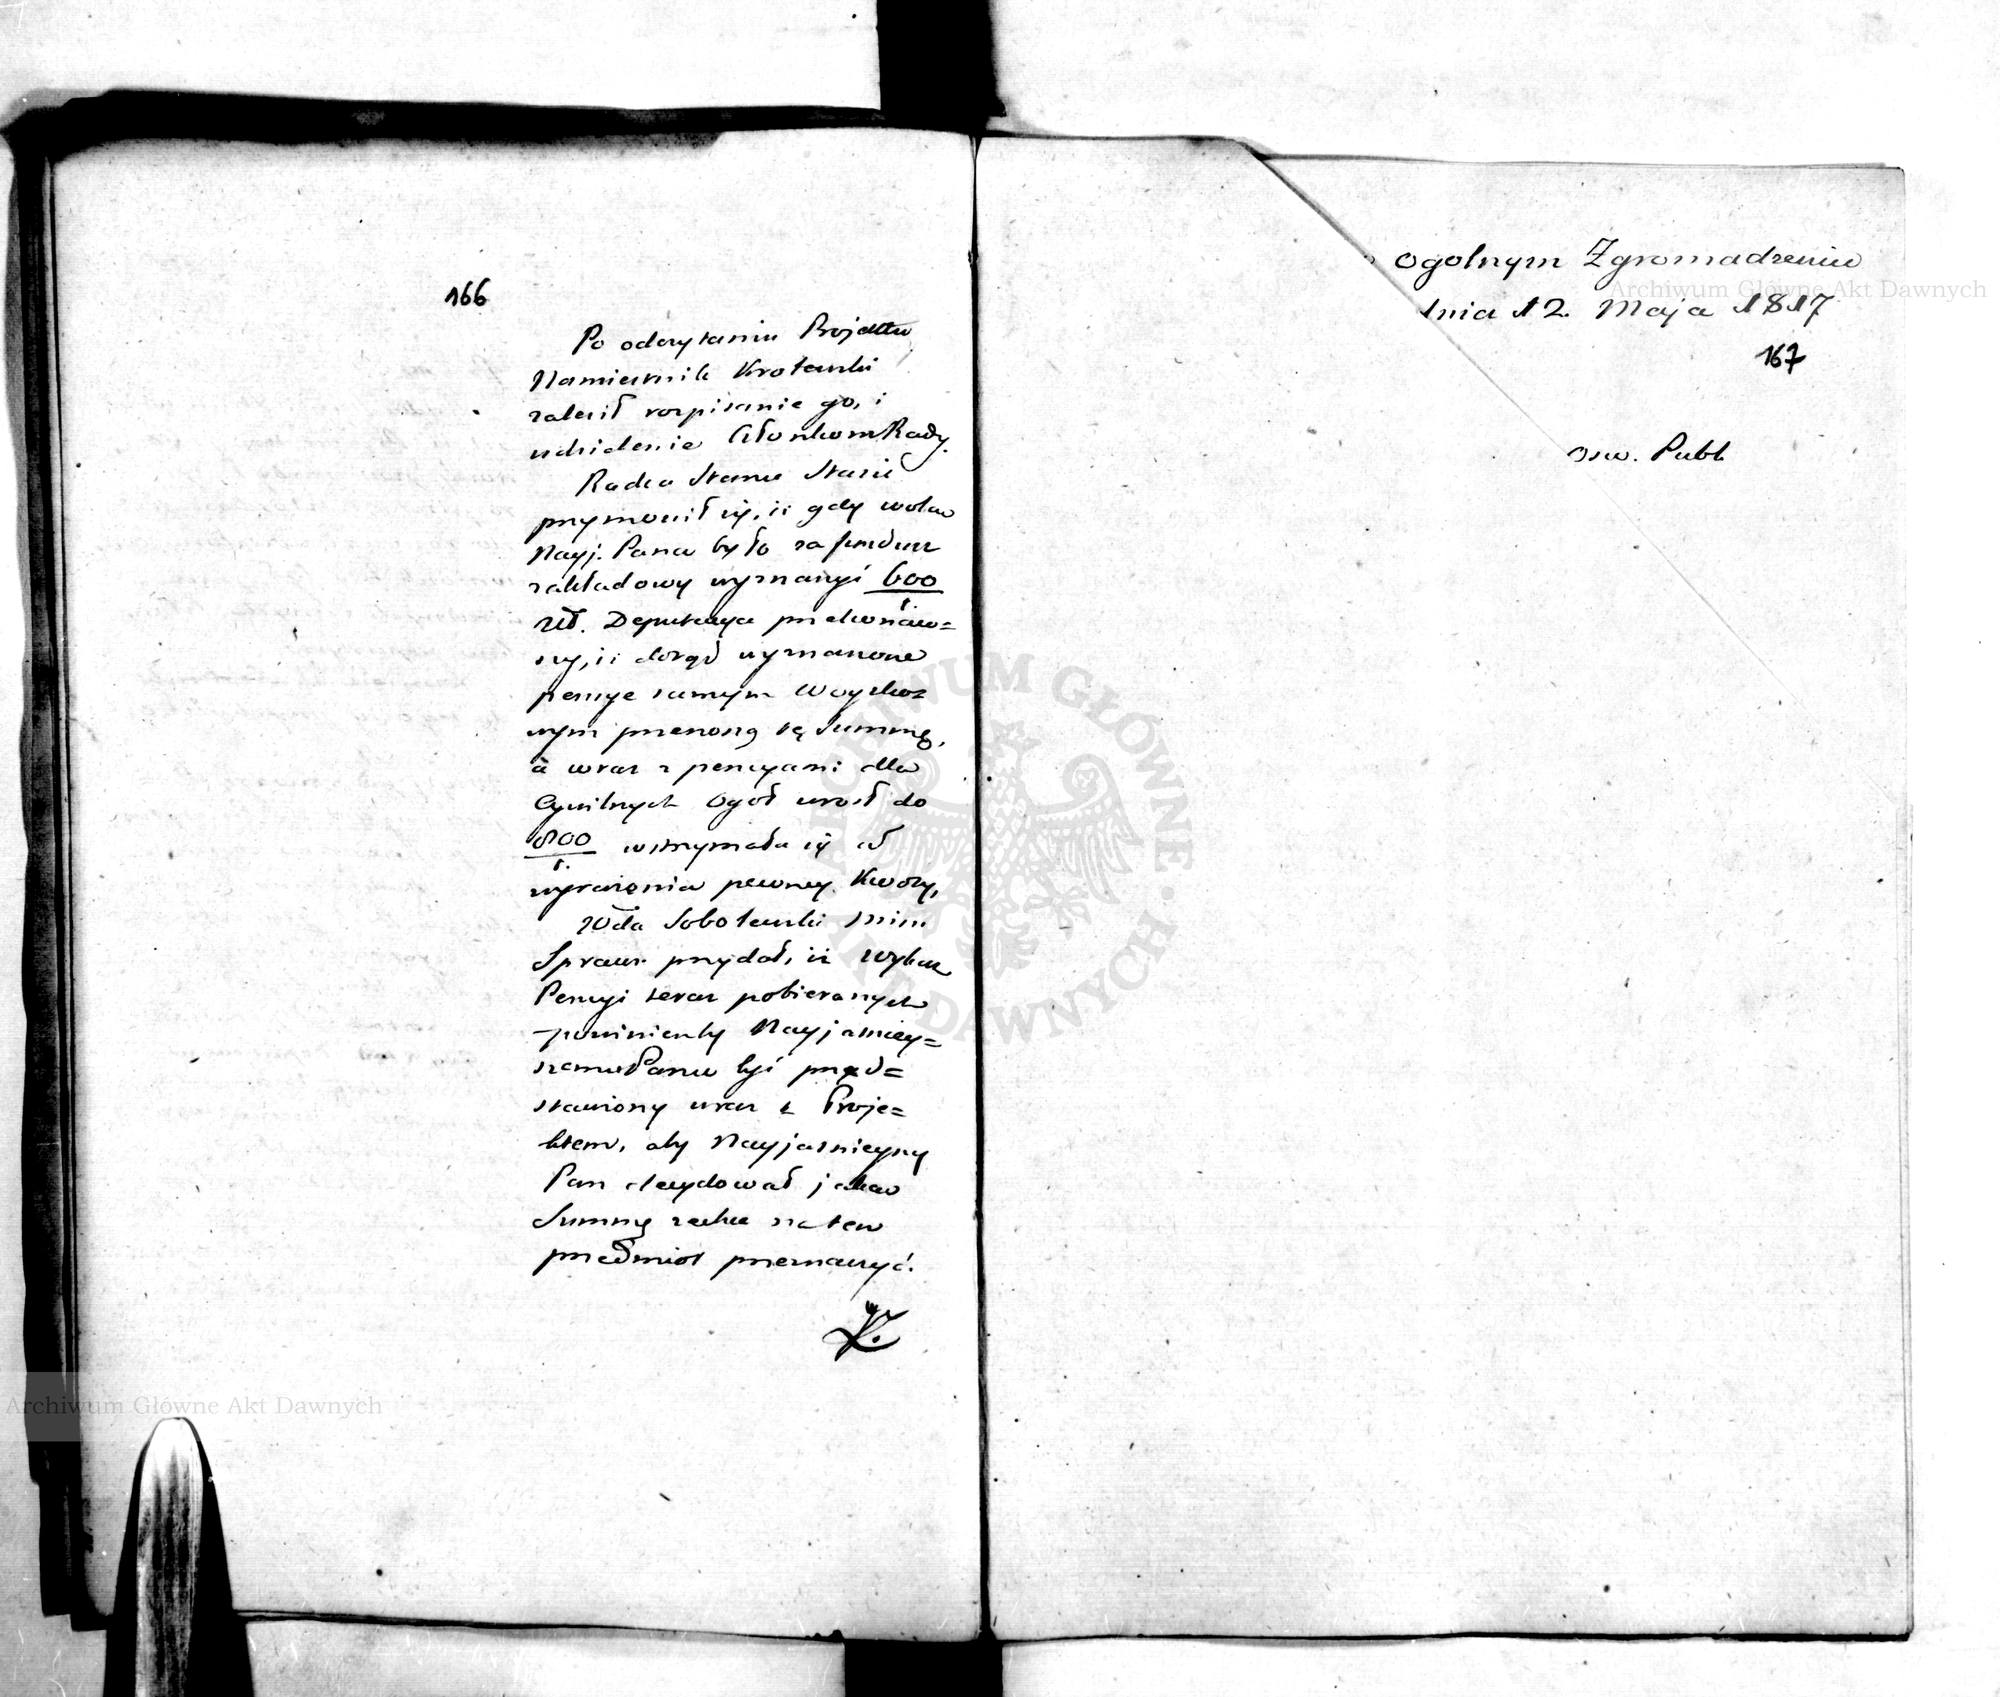 166
Po odczytaniu Projektu
Namiestnik Krolewski
zalecił rozpisanie go, i
udzielenie Członkom Rady.
Radca Stanu Staszic
przymowił się, iż gdy wolą
Nayj. Pana było za fundusz
zakładowy wyznaczyć 600
t.
Złt. Deputacya przekonaw=
szy, iż dotąd wyznaczone
pensye samym Woysko=
wym przenoszą tę Summę,
a wraz z pensyami dla
Cywilnych Ogół urosł do
800 wstrzymała się od
t.
wyrażenia pewney Kwoty,
Wda Sobolewski Min
Spraw. przydał, iż Wykaz
Pensyi teraz pobieranych
powinienby Nayjaśniey=
szemu Panu być przed=
stawiony wraz z Proje=
ktem, aby Nayjaśnieyszy
Pan decydował jaką
Summę zechce na ten
przedmiot przeznaczyć.
ogolnym Zgromadzeniu
dnia 12. Maja 1817
167
Ośw. Publ
Archiwum Główne Akt Dawnych
Archiwum Główne Akt Dawnych
ARCHIWUM GŁÓWNE AKT DAWNYCH